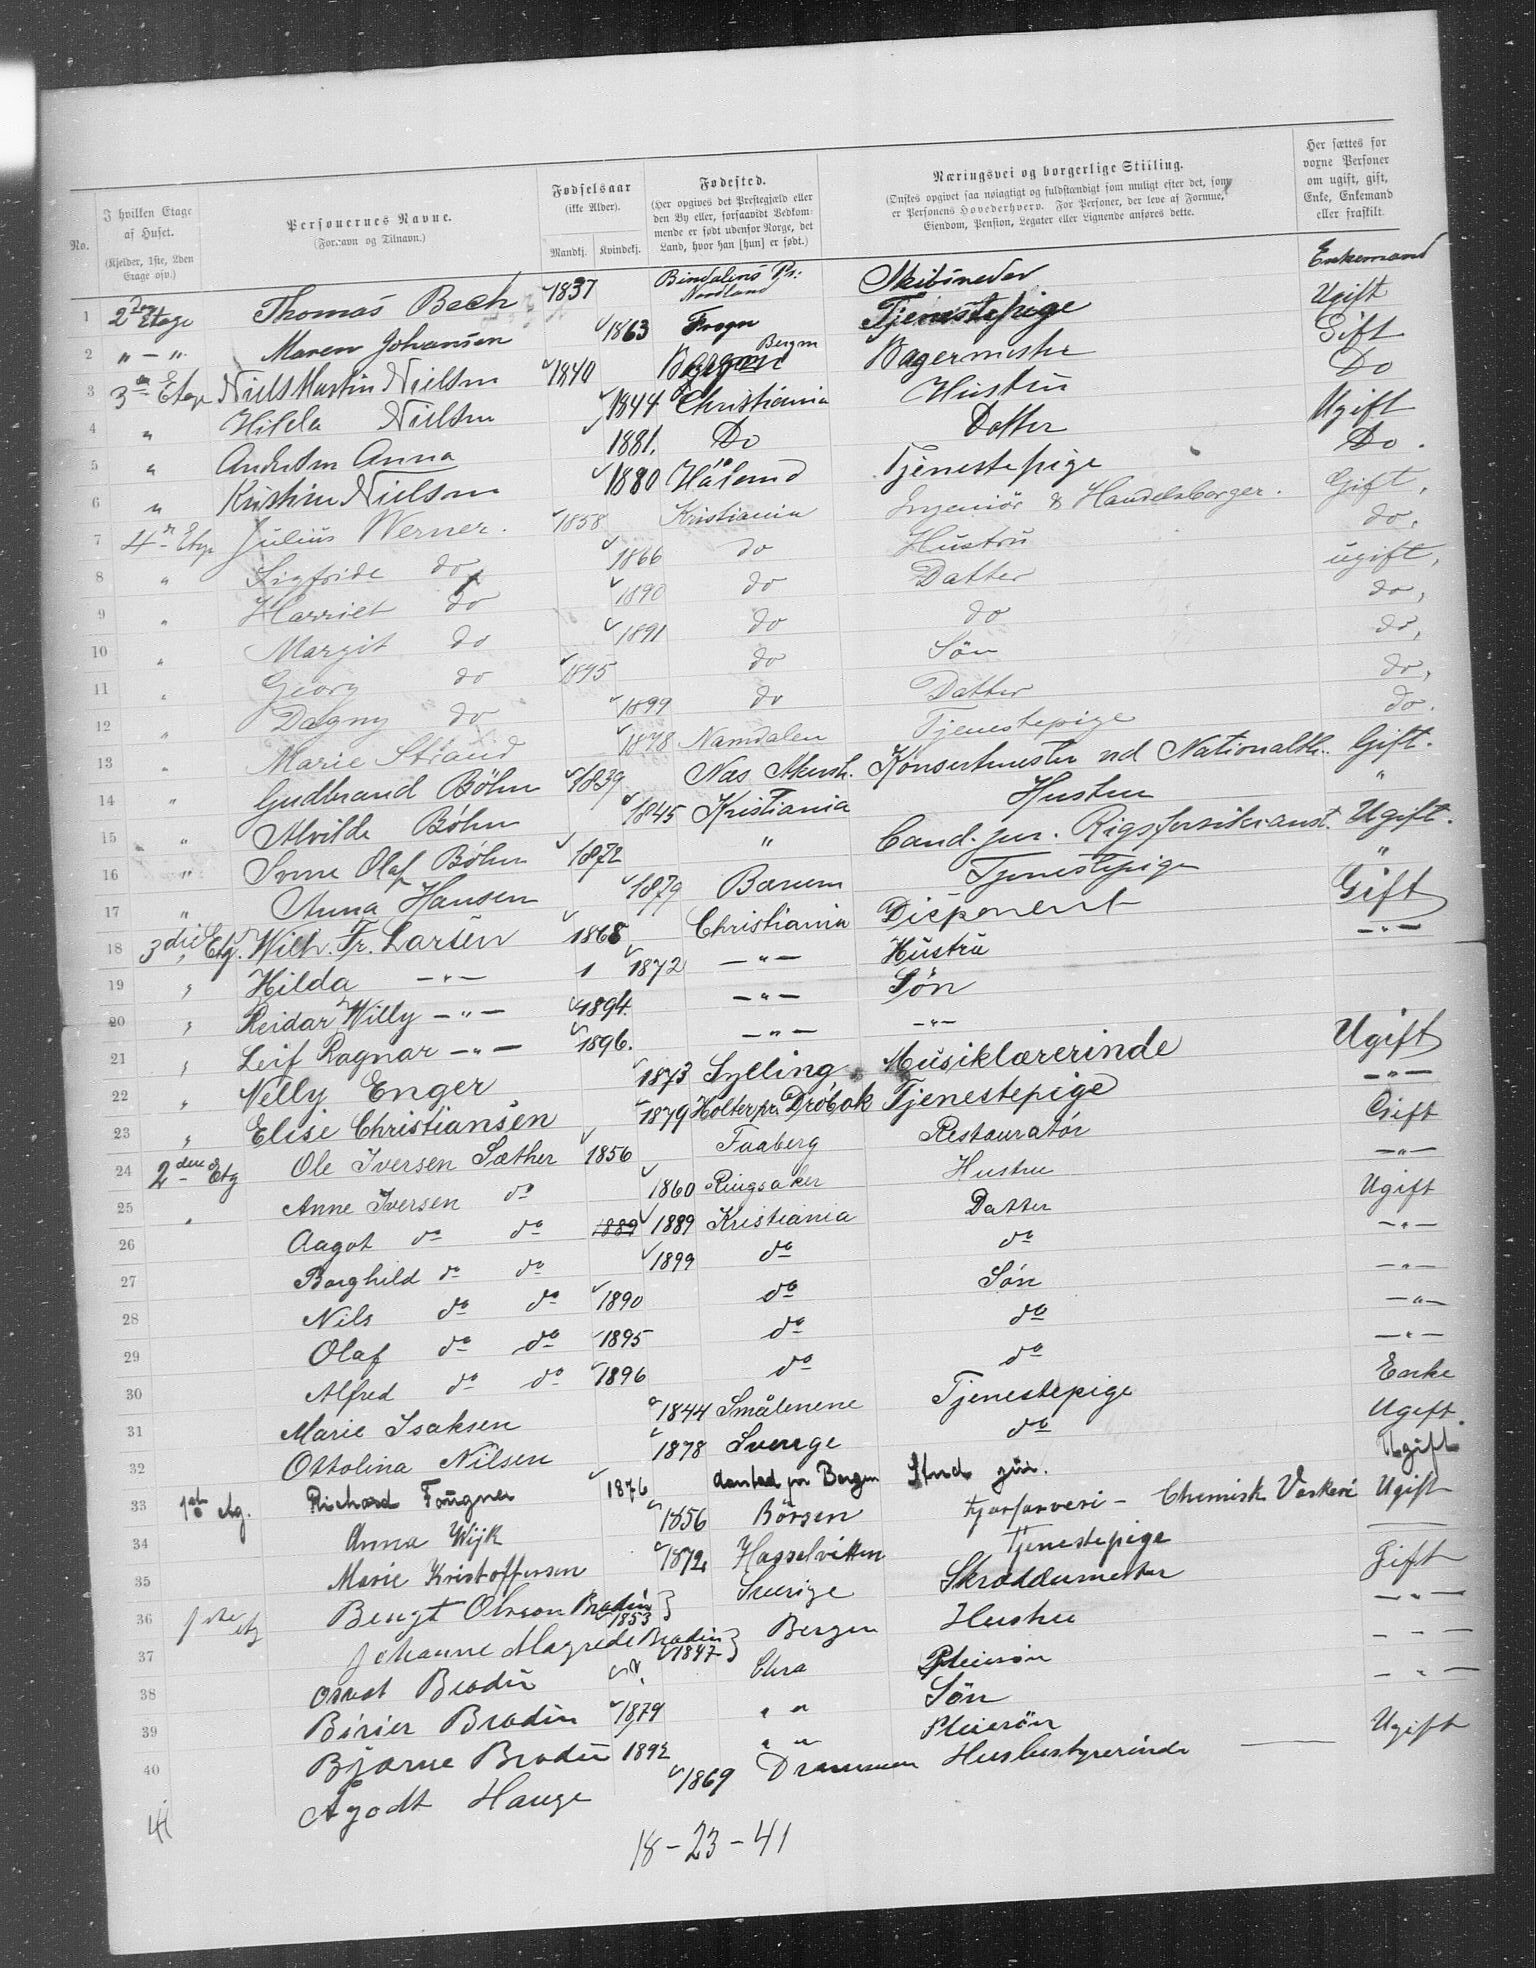 No.
I hvilken Etage af Huset.
(Kjelder, 1ste, 2den Etage osv.)
Personernes Navne.
(Fornavn og Tilnavn.)
Fødselsaar
(ikke Alder).
Mandkj. Kvindekj.
Fødested.
(Her opgives det Prestegjæld eller den By eller, forsaavidt Vedkommende er født udenfor Norge, det Land, hvor han [hun] er født.)
Næringsvei og borgerlige Stilling.
(Ønskes opgivet saa nøiagtigt og fuldstændigt som muligt efter det, som er Personens Hovederhverv. For Personer, der leve af Formue, Eiendom, Pension, Legater eller Lignende anføres dette.
Her sættes for voxne Personer om ugift, gift, Enke, Enkemand eller fraskilt.
1 2den Etage Thomas Bech 1837 Bindalens Pr: Nordland Skibsreder Enkemand
2 " — " Maren Johansen 1863 Frogn Tjenestepige Ugift
3 3die Etage Niels Martin Nielsen 1840 Bergen Bagermester Gift
4 " Hilda Nielsen 1844 Christiania Hustru Do
5 " Andersen Anna 1881. Do Datter Ugift
6 " Kristine Nielsen 1880 Hålend Tjenestepige Do.
7 4de Etage Julius Werner. 1858 Kristiania Ingeniør & Handelsborger. Gift,
8 " Sigfride do 1866 do Hustru do,
9 " Harriet do 1890 do Datter ugift,
10 " Margit do 1891 do do do,
11 " Georg do 1895 do Søn do,
12 " Dagny do 1899 do Datter do,
13 " Marie Strand 1878 Namdalen Tjenestepige do.
14 " Gudbrand Bøhn 1839 Næs Akersh. Konsertmester ved Nationalth. Gift.
15 " Alvilde Bøhn 1845 Kristiania Hustru "
16 " Olaf Bøhn 1872 " Cand. jur. Ugift.
17 " Anna Hansen 1879 Bærum Tjenestepige "
18 3die Etg. Wilh. Fr. Larsen 1868 Christiania Disponent Gift
19 " Hilda — " — 1 1872 — " — Hustru — " —
20 " Reidar Willy — " — 1894. — " — Søn
21 " Leif Ragnar — " — 1896. — " — — " —
22 " Nelly Enger 1873 Sylling Musiklærerinde Ugift
23 " Elise Christiansen 1879 Holter pr. Drøbak Tjenestepige — " —
24 2den Etg Ole Iversen Sæther 1856 Faaberg Restauratør Gift
25 " Anne Iversen do 1860 Ringsaker Hustru — " —
26 Aagot do do 1889 1889 Kristiania Datter Ugift
27 Borghild do do 1899 do do — " —
28 Nils do do 1890 do Søn — " —
29 Olaf do do 1895 do do — " —
30 Alfred do do 1896 do do — " —
31 Marie Isaksen 1844 Smålenene Tjenestepige Enke
32 Ottolina Nilsen 1878 Sverige do Ugift.
33 1ste etg. Richard Fougner 1876 pr Bergen Stud jur. Ugift
34 Anna Wijk 1856 Børsen – Chemisk Vaskeri Ugift
35 Marie Kristoffersen 1872 Hasselvikken Tjenestepige
36 1ste etg Bengt Olsson Brodin 1853 Sverige Skræddermester Gift
37 Johanne Magrede Brodin 1847 Bergen Hustru — " —
38 Brodin Chra Pleiesøn — — —
39 Birier Brodin 1879 " " Søn — " —
40 Bjarne Brodin 1892 " " Pleiesøn
41 Agodt Hauge 1869 Drammen Husbestyrerinde Ugift
18 – 23 – 41